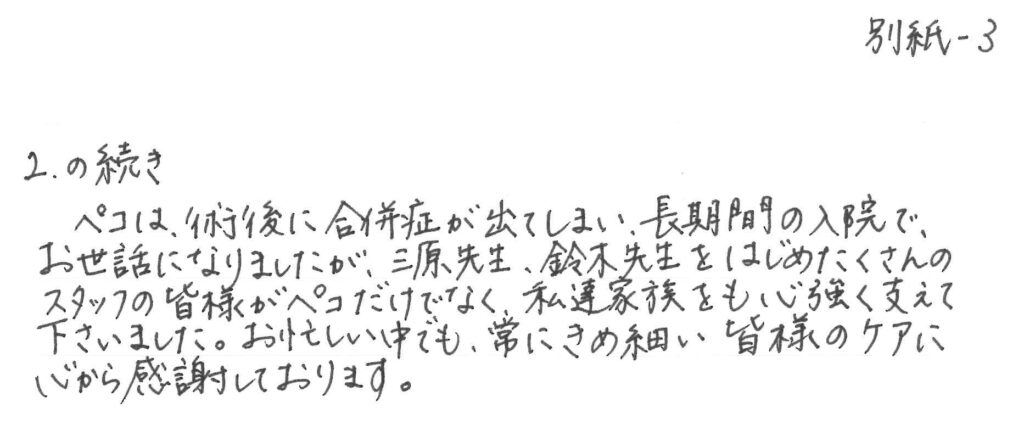 別紙-3
2.の続き
ペコは、術後に合併症が出てしまい、長期間の入院で、
お世話になりましたが、三原先生、鈴木先生をはじめたくさんの
スタッフの皆様がペコだけでなく、私達家族をも心強く支えて
下さいました。お忙しい中でも、常にきめ細い皆様のケアに
心から感謝しております。